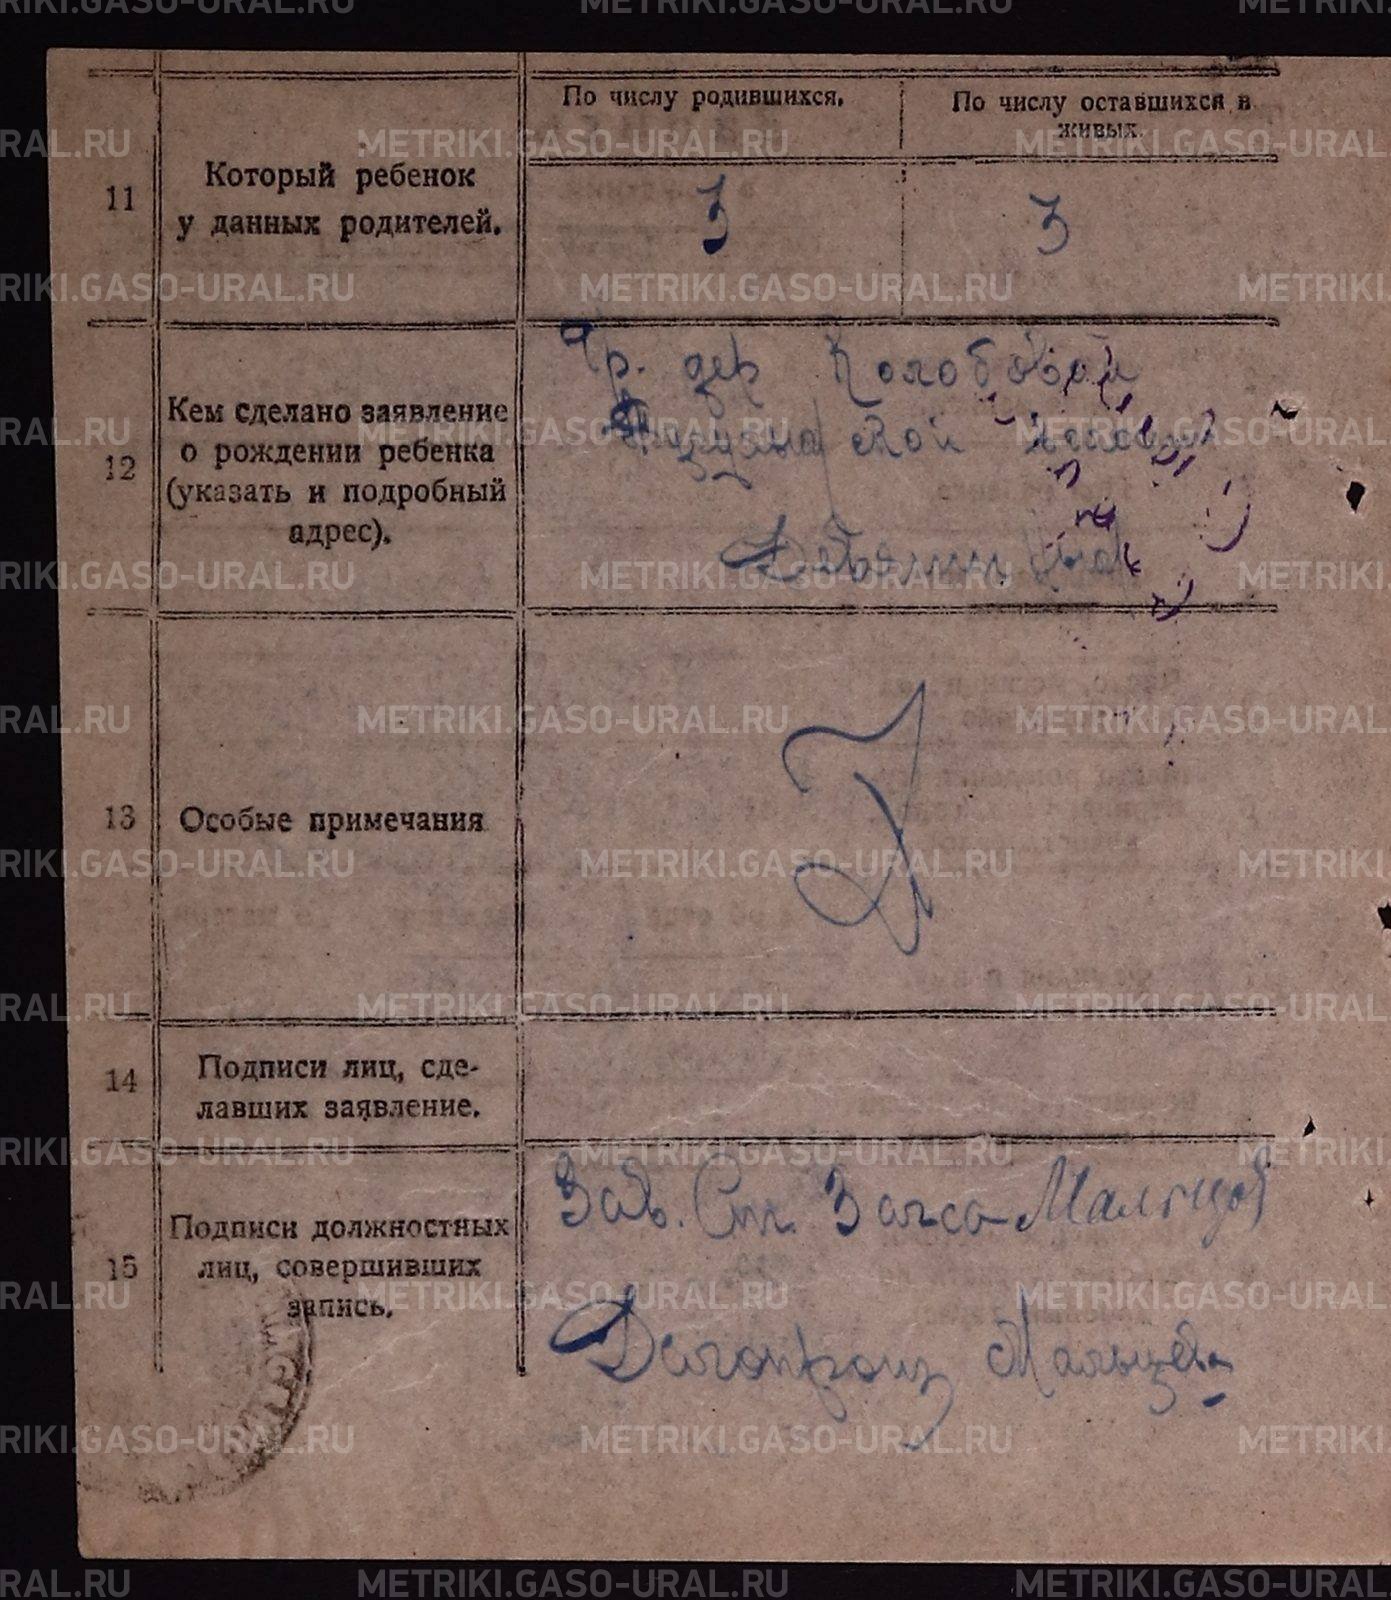 По числу родившихся.
По числу оставшихся в
живых.
11
Который ребенок
у данных родителей.
3
3
12
Кем сделано заявление
о рождении ребенка
(указать и подробный
адрес).
Гр. дер Колобовой
13
Особые примечания
Z
14
Подписи лиц, сде-
лавших заявление.
15
Подписи должностных
лиц, совершивших
запись.
Зав. Ст. Загса Мальцов
Делопроиз Мальцев
METRIKI.GASO-URAL.RU